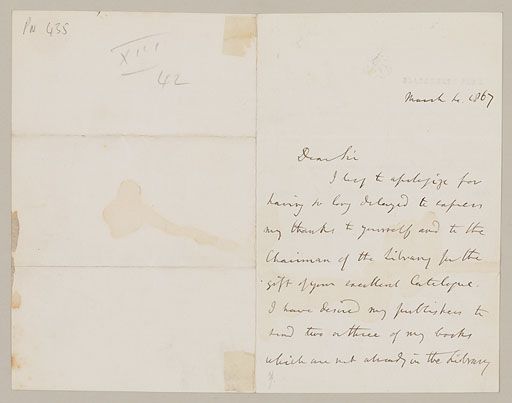 PN 435
XIII
42
March 4. 1867
Dear Sir
I beg to apologize for
having so long delayed to express
my thanks to yourself and to the
Chairman of the Library for the
gift of your excellent Catalogue.
I have desired my publishers to
send two or three of my books
which are not already in the Library